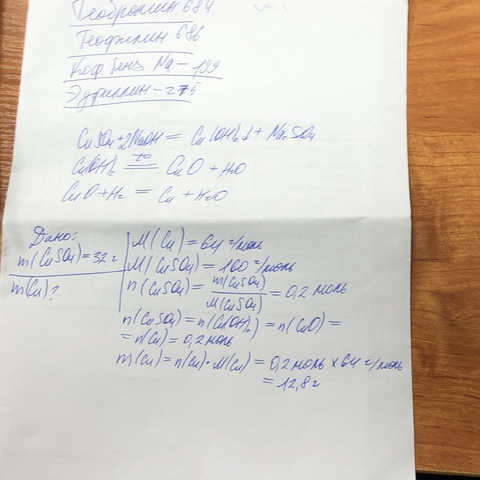 Теобромин 684
Теофиллин 686
Коф бенз Na - 199
Эуфиллин - 275
CuSO₄ + 2NaOH = Cu(OH)₂↓ + Na₂SO₄
Cu(OH)₂ =t°= CuO + H₂O
CuO + H₂ = Cu + H₂O
Дано:
m(CuSO₄) = 32 г
m(Cu)?
M(Cu) = 64 г/моль
M(CuSO₄) = 160 г/моль
n(CuSO₄) = m(CuSO₄)/M(CuSO₄) = 0,2 моль
n(CuSO₄) = n(Cu(OH)₂) = n(CuO) =
= n(Cu) = 0,2 моль
m(Cu) = n(Cu)·M(Cu) = 0,2 моль × 64 г/моль
= 12,8 г